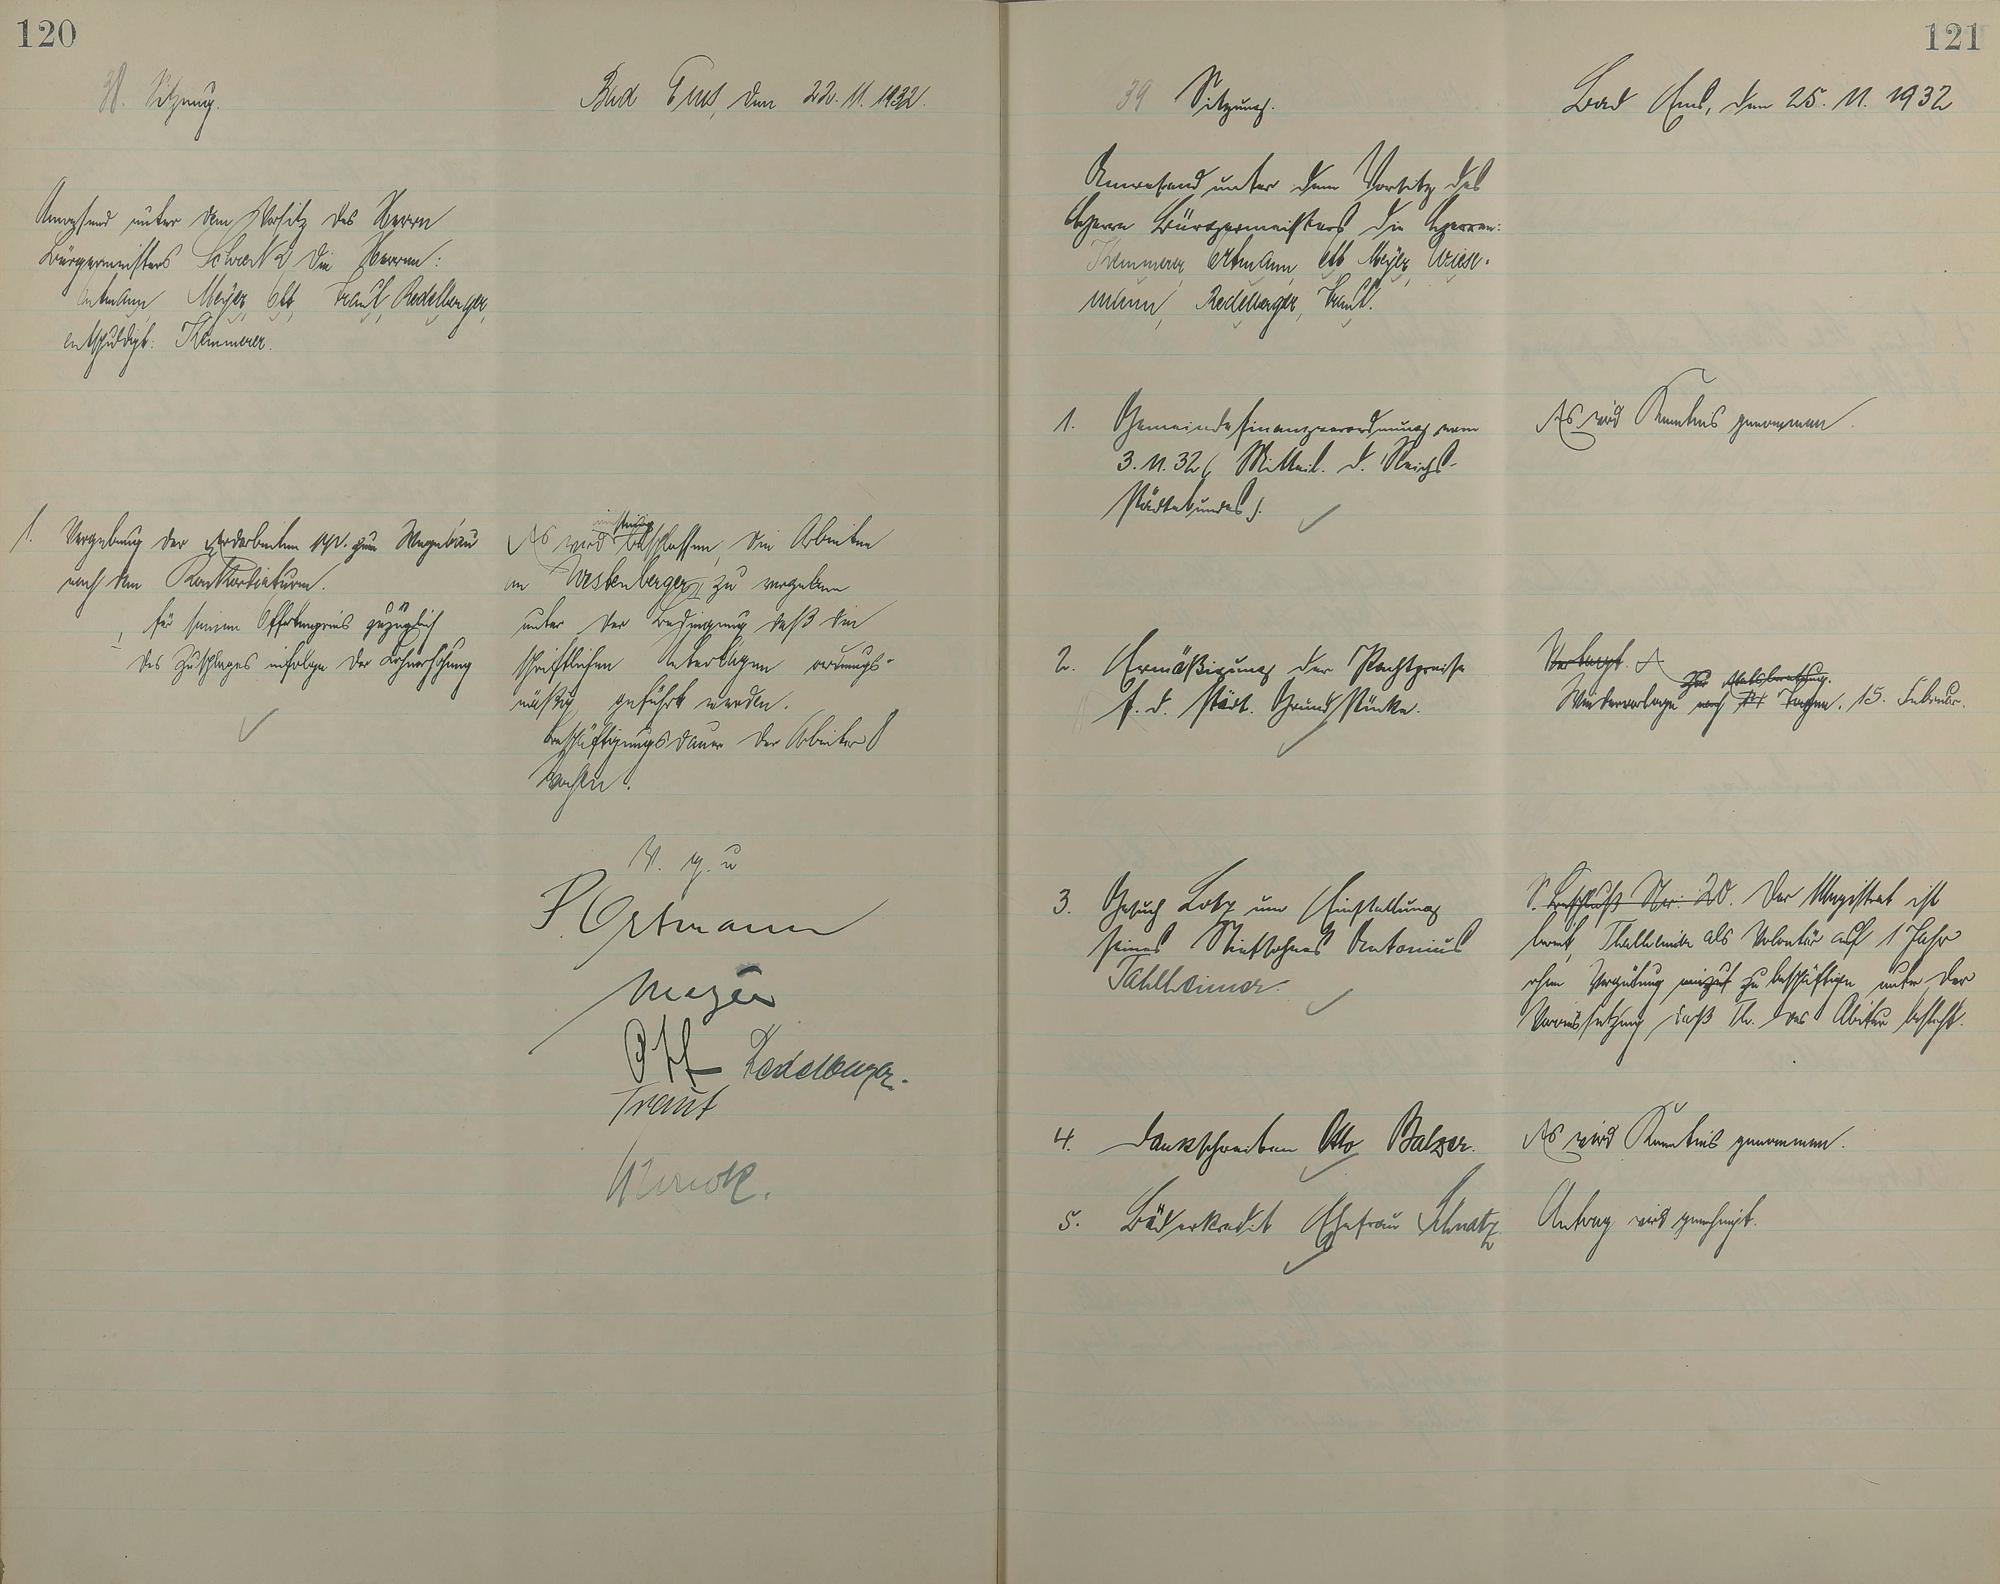 120
38. Sitzung.
Bad Ems, den 22. 11. 1932.
Anwesend unter dem Vorsitz des Herrn
Bürgermeisters Schreck die Herren:
Ortmann, Meyer, Ott, Traut, Redelberger,
entschuldigt: Kemmerer.
1. Vergebung der Erdarbeiten pp. zum Wegebau
nach dem Konkordiaturm.
für seinen Offertenpreis zuzüglich
des Zuschlages infolge der Lohnerhöhung
Es wird einstimmig beschlossen, die Arbeiten
an Westenberger zu vergeben
unter der Bedingung daß die
schriftlichen Unterlagen ordnungs-
mäßig geführt werden.
Beschäftigungsdauer der Arbeiter 8
Wochen.
V. g. u
P. Ortmann
Meyer
Ott Redelberger.
Traut
Schreck.
121
39 Sitzung.
Bad Ems, den 25. 11. 1932
Anwesend unter dem Vorsitz des
Herrn Bürgermeisters die Herren:
Kemmerer, Ortmann, Ott, Meyer, Wiese-
mann, Redelberger, Traut.
1. Gemeindefinanzverordnung vom
3. 11. 32 (Mitteil. d. Reichs-
städtebundes).
Es wird Kenntnis genommen.
2. Ermäßigung der Pachtpreise
f. d. städt. Grundstücke.
Vertagt.
zur Etatsberatung.
Wiedervorlage nach Tagen. 15. Februar.
3. Gesuch Lotz um Einstellung
seines Stiefsohnes Antonius
Tahlheimer.
S. Beschluß Nr. 20. Der Magistrat ist
bereit, Thalheimer als Volontär auf 1 Jahr
ohne Vergütung zu beschäftigen unter der
Voraussetzung daß Th. das Abitur besteht.
4. Dankschreiben Otto Balzer.
Es wird Kenntnis genommen.
5. Bäderkredit Ehefrau Schnatz
Antrag wird genehmigt.